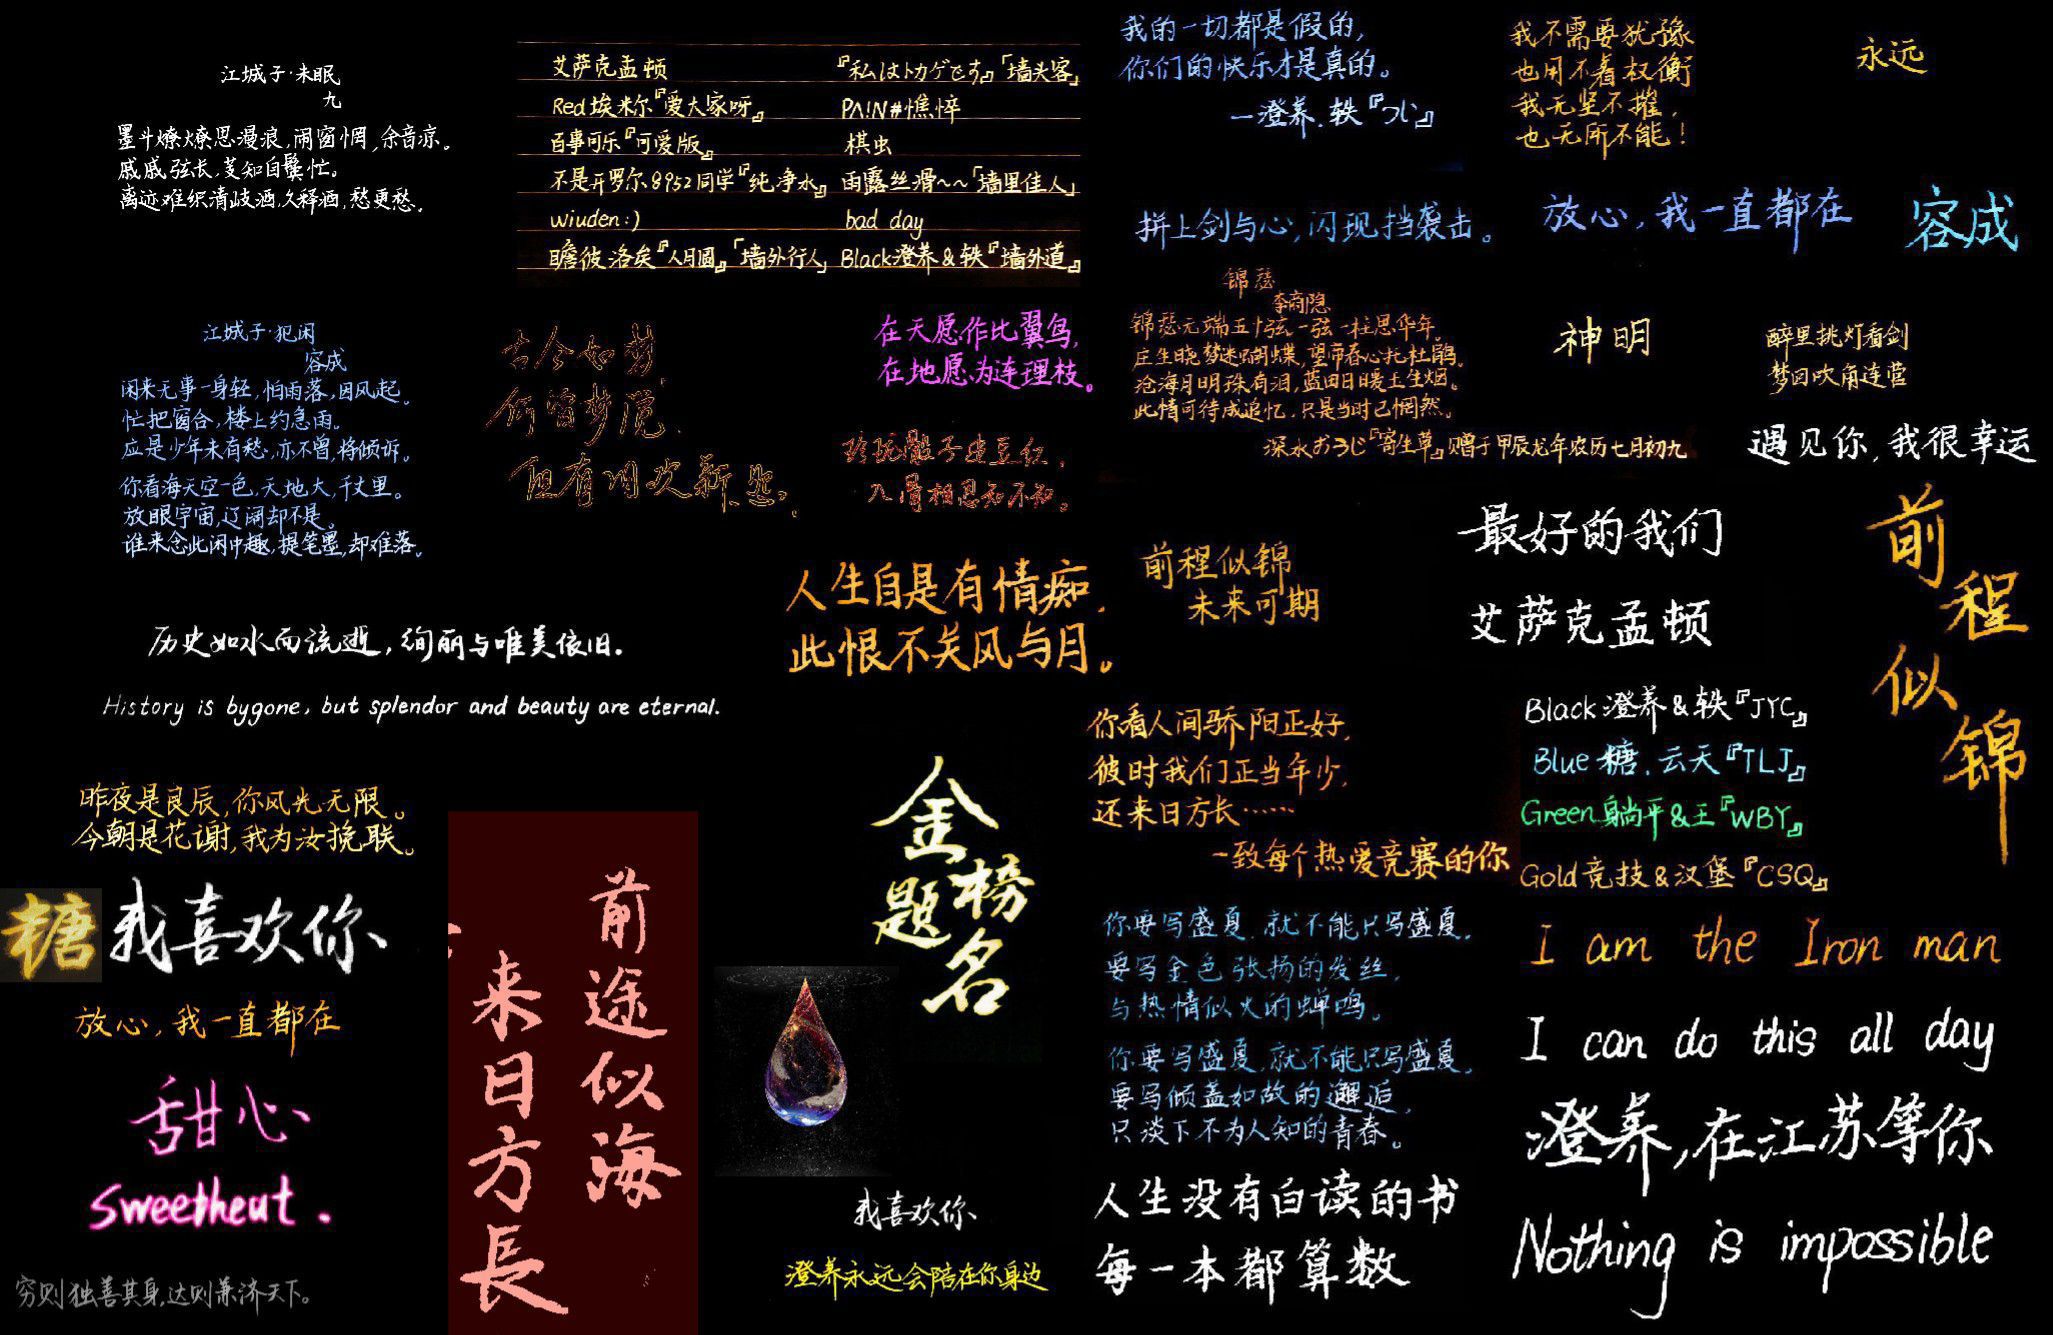 江城子·未眠
九
墨斗燎燎思漫浪,雨窗惘,余音凉。
戚戚弦长,芰知自鬓忙。
离迹难织清歧酒,久释酒,愁更愁。
艾萨克孟顿
Red埃米尔『爱大家呀』
百事可乐『可爱版』
不是开罗尔8952同学『纯净水』
wiuden:)
瞻彼洛矣『人月圆』「墙外行人」
『私はトカゲです』「墙头客」
PAIN#憔悴
棋虫
雨露丝滑～～「墙里佳人」
bad day
Black澄养&轶『墙外道』
我的一切都是假的,
你们的快乐才是真的。
—澄养.轶『づじ』
我不需要犹豫
也用不着权衡
我无坚不摧,
也无所不能!
永远
拼上剑与心,闪现挡袭击。
放心,我一直都在
容成
江城子·犯闲
容成
闲来无事一身轻,怕雨落,因风起。
忙把窗合,楼上约急雨。
应是少年未有愁,亦不曾,将倾诉。
你看海天空一色,天地大,千丈里。
放眼宇宙,辽阔却不是。
谁来念此闲中趣,提笔墨,却难落。
古今如梦,
何曾梦觉,
但有旧欢新怨。
在天愿作比翼鸟,
在地愿为连理枝。
玲珑骰子安红豆,
入骨相思知不知。
锦瑟
李商隐
锦瑟无端五十弦,一弦一柱思华年。
庄生晓梦迷蝴蝶,望帝春心托杜鹃。
沧海月明珠有泪,蓝田日暖玉生烟。
此情可待成追忆,只是当时已惘然。
深水おうじ『寄生草』赠于甲辰龙年农历七月初九
神明
醉里挑灯看剑
梦回吹角连营
遇见你,我很幸运
历史如水而流逝,绚丽与唯美依旧.
History is bygone, but splendor and beauty are eternal.
人生自是有情痴,
此恨不关风与月。
前程似锦
未来可期
最好的我们
艾萨克孟顿
前程似锦
Black澄养&轶『JYC』
Blue糖.云天『TLJ』
Green躺平&王『WBY』
Gold竞技&汉堡『CSQ』
昨夜是良辰,你风光无限。
今朝是花谢,我为汝挽联。
糖
我喜欢你
放心,我一直都在
甜心
Sweetheut.
穷则独善其身,达则兼济天下。
前途似海
来日方長
金榜题名
我喜欢你
澄养永远会陪在你身边
你看人间骄阳正好,
彼时我们正当年少,
还来日方长……
—致每个热爱竞赛的你
你要写盛夏,就不能只写盛夏,
要写金色张扬的发丝,
与热情似火的蝉鸣。
你要写盛夏,就不能只写盛夏,
要写倾盖如故的邂逅,
只淡下不为人知的青春。
人生没有白读的书
每一本都算数
I am the Iron man
I can do this all day
澄养,在江苏等你
Nothing is impossible